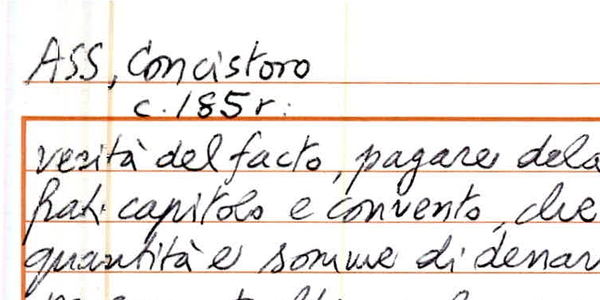 ASS, Concistoro
c. 185 r.
verità del facto, pagare dela
frati capitolo e convento, che
quantità e somme di denar